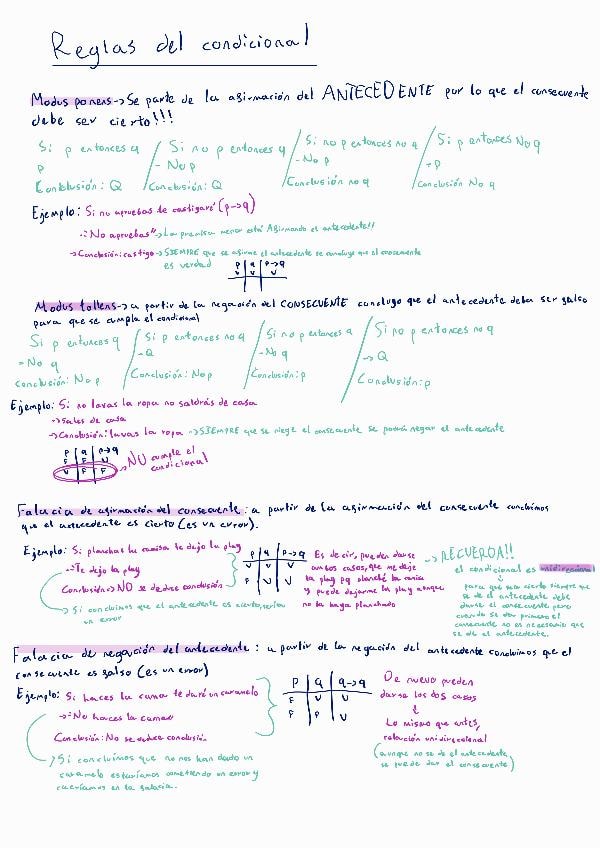 Reglas del condicional
Modus ponens -> Se parte de la afirmación del ANTECEDENTE por lo que el consecuente
debe ser cierto!!!
Si p entonces q / Si no p entonces q / Si no p entonces no q / Si p entonces No q
p - No p - No p - p
Conclusión: Q Conclusión: Q Conclusión no q Conclusión No q
Ejemplo: Si no apruebas te castigaré (p->q)
"No apruebas" -> La premisa menor está Afirmando el antecedente!!
-> Conclusión: castigo -> SIEMPRE que se afirme el antecedente se concluye que el consecuente
es verdad
p | q | p->q
V | V | V
Modus tollens -> a partir de la negación del CONSECUENTE concluyo que el antecedente deba ser falso
para que se cumpla el condicional
Si p entonces q / Si p entonces no q / Si no p entonces q / Si no p entonces no q
- No q - Q - No q -> Q
Conclusión: No p Conclusión: No p Conclusión: p Conclusión: p
Ejemplo: Si no lavas la ropa no saldrás de casa
-> Sales de casa
-> Conclusión: lavas la ropa -> SIEMPRE que se niege el consecuente se podrá negar el antecedente
p | q | p->q
F | F | V
V | F | F -> NO cumple el
condicional
Falacia de afirmación del consecuente: a partir de la afirmación del consecuente concluimos
que el antecedente es cierto (es un error).
Ejemplo: Si planchas la camisa te dejo la play
-> Te dejo la play
Conclusión -> NO se deduce conclusión
-> Si concluimos que el antecedente es cierto, sería
un error
p | q | p->q
V | V | V
F | V | V
Es decir, pueden darse
ambos casos, que me deje
la play pq planché la camisa
y puede dejarme la play aunque
no la haya planchado
-> RECUERDA!!
el condicional es unidireccional
para que sea cierto siempre que
se dé el antecedente debe
darse el consecuente pero
cuando se da primero el
consecuente no es necesario que
se dé el antecedente.
Falacia de negación del antecedente: a partir de la negación del antecedente concluimos que el
consecuente es falso (es un error)
Ejemplo: Si haces la cama te daré un caramelo
-> No haces la cama
Conclusión: No se deduce conclusión
-> Si concluimos que no nos han dado un
caramelo estaríamos cometiendo un error y
caeríamos en la falacia.
p | q | q->q
F | V | V
F | F | V
De nuevo pueden
darse los dos casos
Lo mismo que antes,
relación unidireccional
(aunque no se dé el antecedente
se puede dar el consecuente)